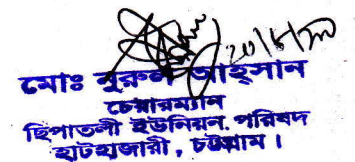 মোঃ নুরুল আহ্সান
চেয়ারম্যান
ছিপাতলী ইউনিয়ন পরিষদ
হাটহাজারী, চট্টগ্রাম।